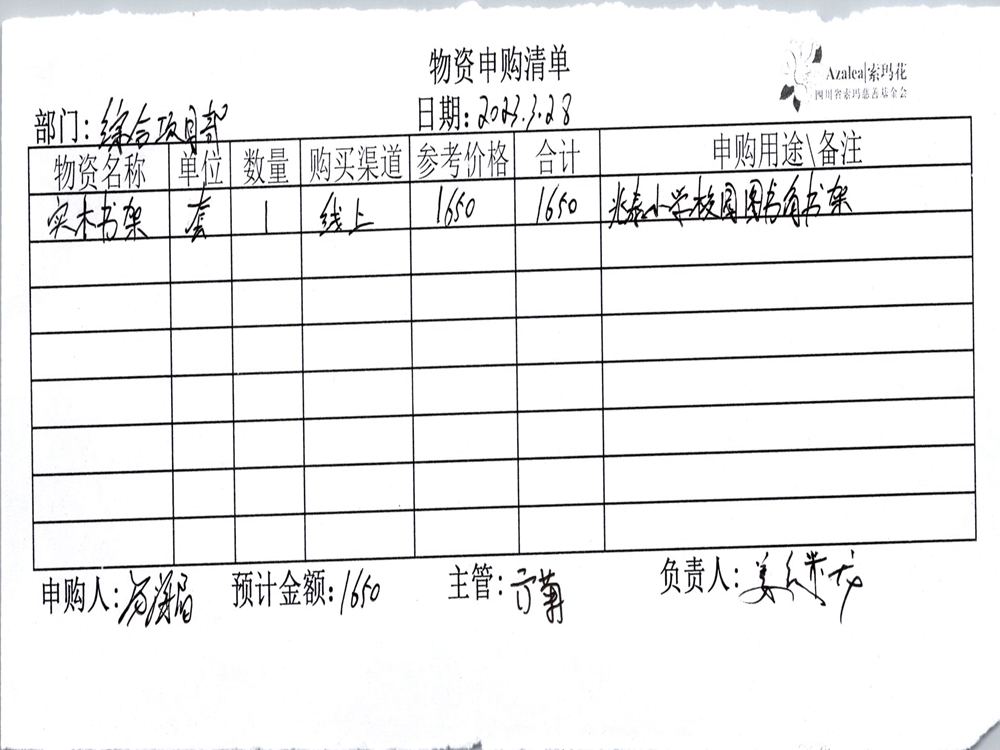 物资申购清单
Azalea|索玛花
四川省索玛慈善基金会
部门:综合项目部
日期:2023.3.28
物资名称 单位 数量 购买渠道 参考价格 合计 申购用途\备注
实木书架 套 1 线上 1650 1650 小学校园图书角书架
申购人:
预计金额:1650
主管:
负责人: